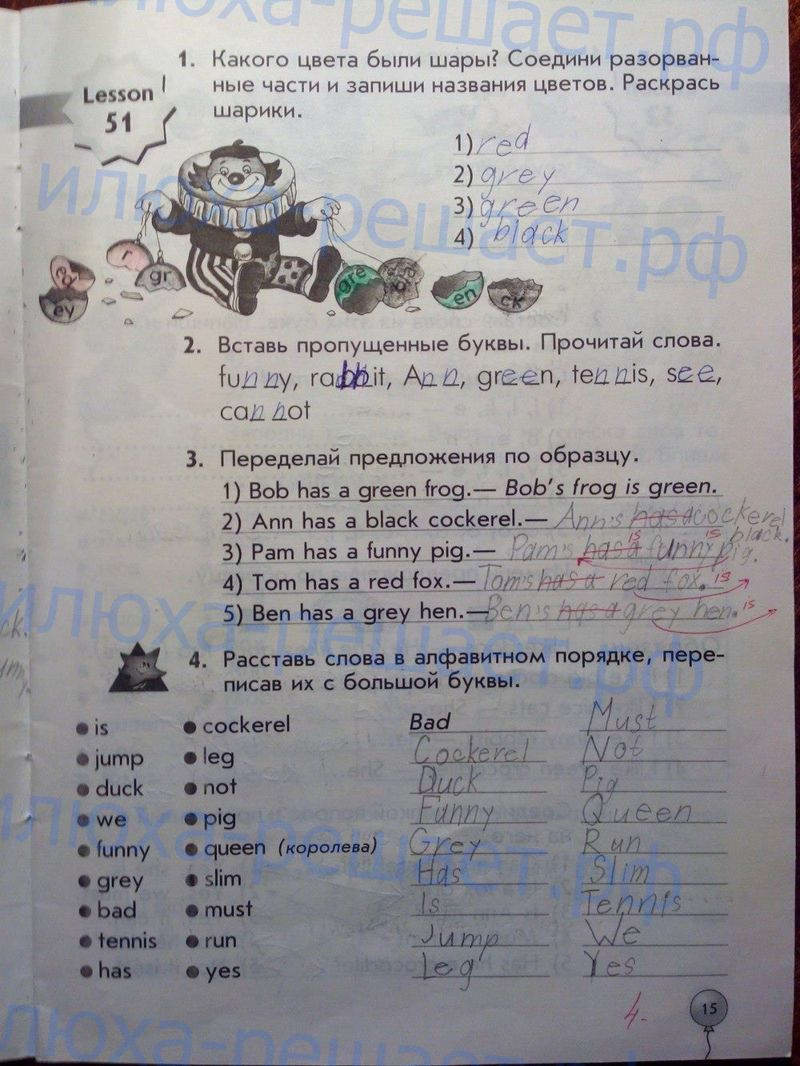 илюха-решает.рф
1. Какого цвета были шары? Соедини разорван-
ные части и запиши названия цветов. Раскрась
шарики.
Lesson
51
1) red
2) grey
3) green
4) black
илюха-решает.рф
ed
r
gr
ey
gre
bla
en
ck
2. Вставь пропущенные буквы. Прочитай слова.
funny, rabbit, Ann, green, tennis, see,
cannot
илюха-решает.рф
3. Переделай предложения по образцу.
1) Bob has a green frog.— Bob's frog is green.
2) Ann has a black cockerel.— Ann's has a cockerel
is black.
3) Pam has a funny pig.— Pam's has a funny pig.
is
4) Tom has a red fox.— Tom's has a red fox. is
5) Ben has a grey hen.— Ben's has a grey hen. is
илюха-решает.рф
4. Расставь слова в алфавитном порядке, пере-
писав их с большой буквы.
is cockerel Bad Must
jump leg Cockerel Not
duck not Duck Pig
we pig Funny Queen
funny queen (королева) Grey Run
grey slim Has Slim
bad must Is Tennis
tennis run Jump We
has yes Leg Yes
илюха-решает.рф
4-
15
илюха-решает.рф